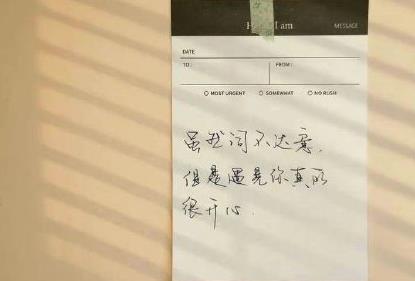 I am
MESSAGE
DATE
TO: FROM:
MOST URGENT SOMEWHAT NO RUSH
虽我词不达意.
但是遇见你真的
很开心.